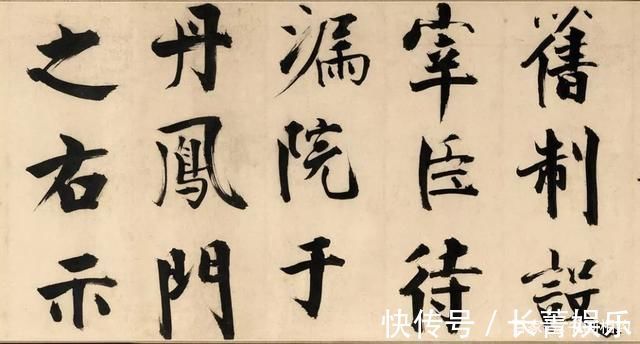 舊制設
宰臣待
漏院于
丹鳳門
之右示
快传号 / 长菁娱乐